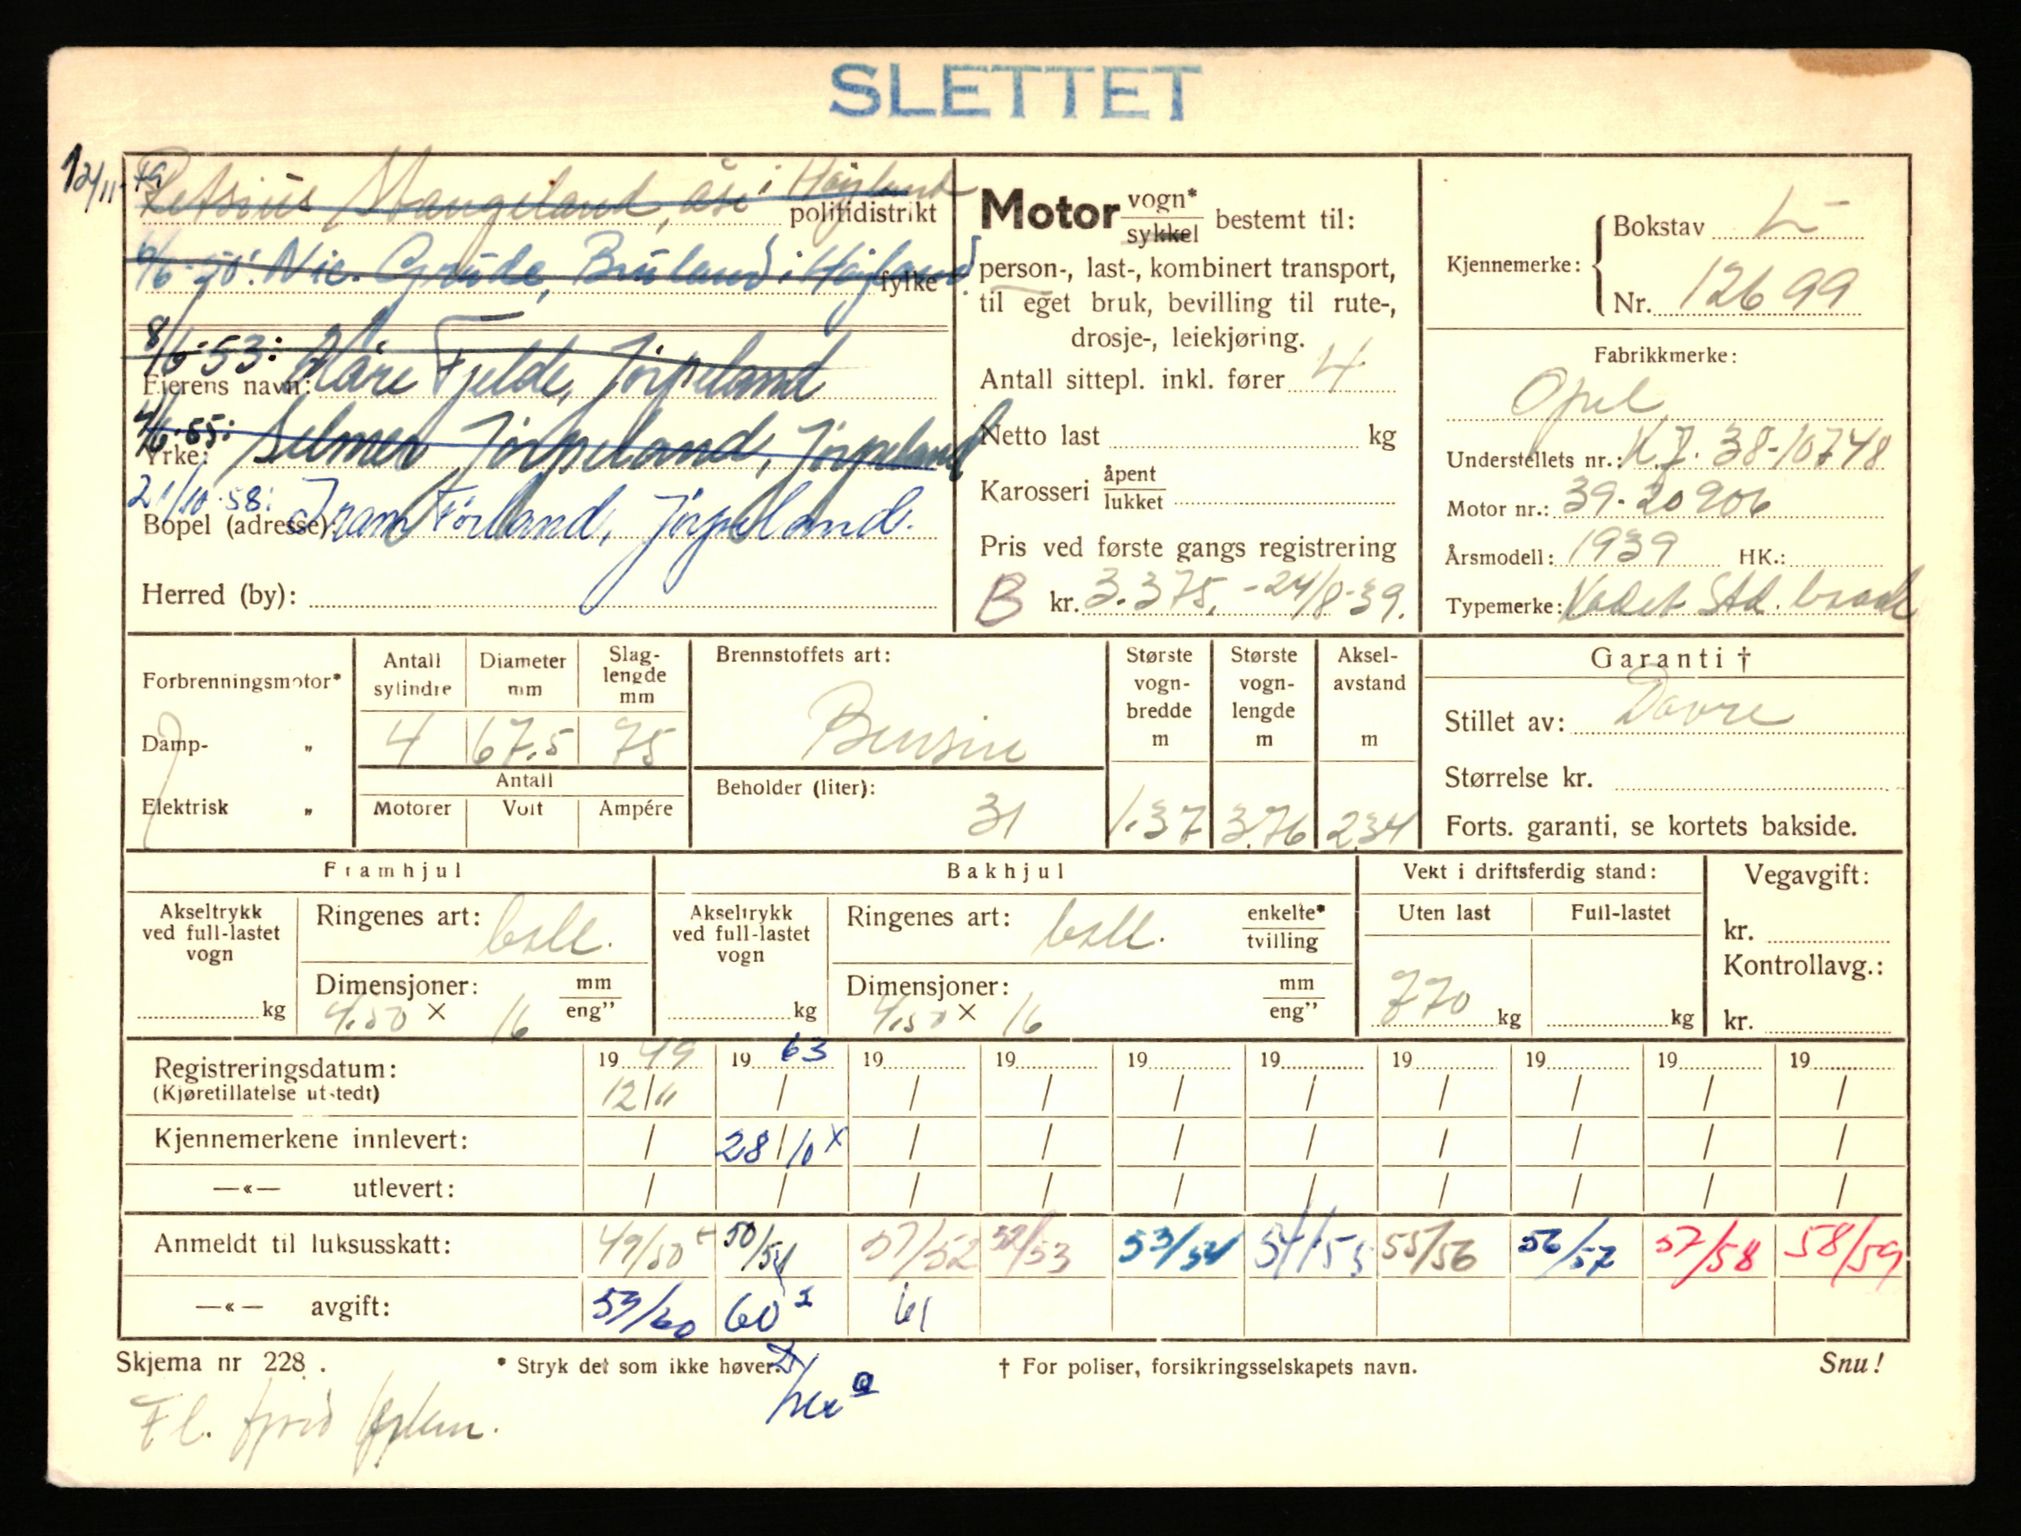 SLETTET
12/11-49 Stangeland, i Høyland
politidistrikt
6/6-50: Nic. Grude, Bruland i Høyland
fylke
8/6-53: Kåre Fjelde, Jørpeland
Eierens navn:
4/6-55: Selmer Jørpeland, Jørpeland
Yrke:
21/10-58: Tram Førland, Jørpeland.
Bopel (adresse):
Herred (by):
Motor vogn* / sykkel bestemt til:
person-, last-, kombinert transport,
til eget bruk, bevilling til rute-,
drosje-, leiekjøring.
Antall sittepl. inkl. fører 4
Netto last kg
Karosseri åpent / lukket
Pris ved første gangs registrering
B kr. 3.375,-24/8-39.
Kjennemerke: Bokstav L
Nr. 12699
Fabrikkmerke:
Opel
Understellets nr.: KJ. 38-10748
Motor nr.: 39-20906
Årsmodell: 1939 HK.:
Typemerke: Kadet Std.
Forbrenningsmotor*
Damp- „
Elektrisk „
Antall sylindre Diameter mm Slag-lengde mm
4 67.5 75
Antall
Motorer Volt Ampére
Brennstoffets art:
Bensin
Beholder (liter):
31
Største vogn-bredde m Største vogn-lengde m Aksel-avstand m
1.37 3.76 2.34
Garanti †
Stillet av: Dovre
Størrelse kr.
Forts. garanti, se kortets bakside.
Framhjul
Akseltrykk ved full-lastet vogn kg
Ringenes art: ball.
Dimensjoner: mm / eng”
4.50 × 16
Bakhjul
Akseltrykk ved full-lastet vogn kg
Ringenes art: ball. enkelte* / tvilling
Dimensjoner: mm / eng”
4.50 × 16
Vekt i driftsferdig stand:
Uten last Full-lastet
770 kg kg
Vegavgift:
kr.
Kontrollavg.:
kr.
Registreringsdatum: 1949 1963 19 19 19 19 19 19 19 19
(Kjøretillatelse utstedt) 12/11 / / / / / / / / /
Kjennemerkene innlevert: / 28/10 x / / / / / / / /
—«— utlevert: / / / / / / / / / /
Anmeldt til luksusskatt: 49/50 50/51 51/52 52/53 53/54 54/55 55/56 56/57 57/58 58/59
—«— avgift: 59/60 60 61
Skjema nr 228. * Stryk det som ikke høver. † For poliser, forsikringsselskapets navn. Snu!
Fl.